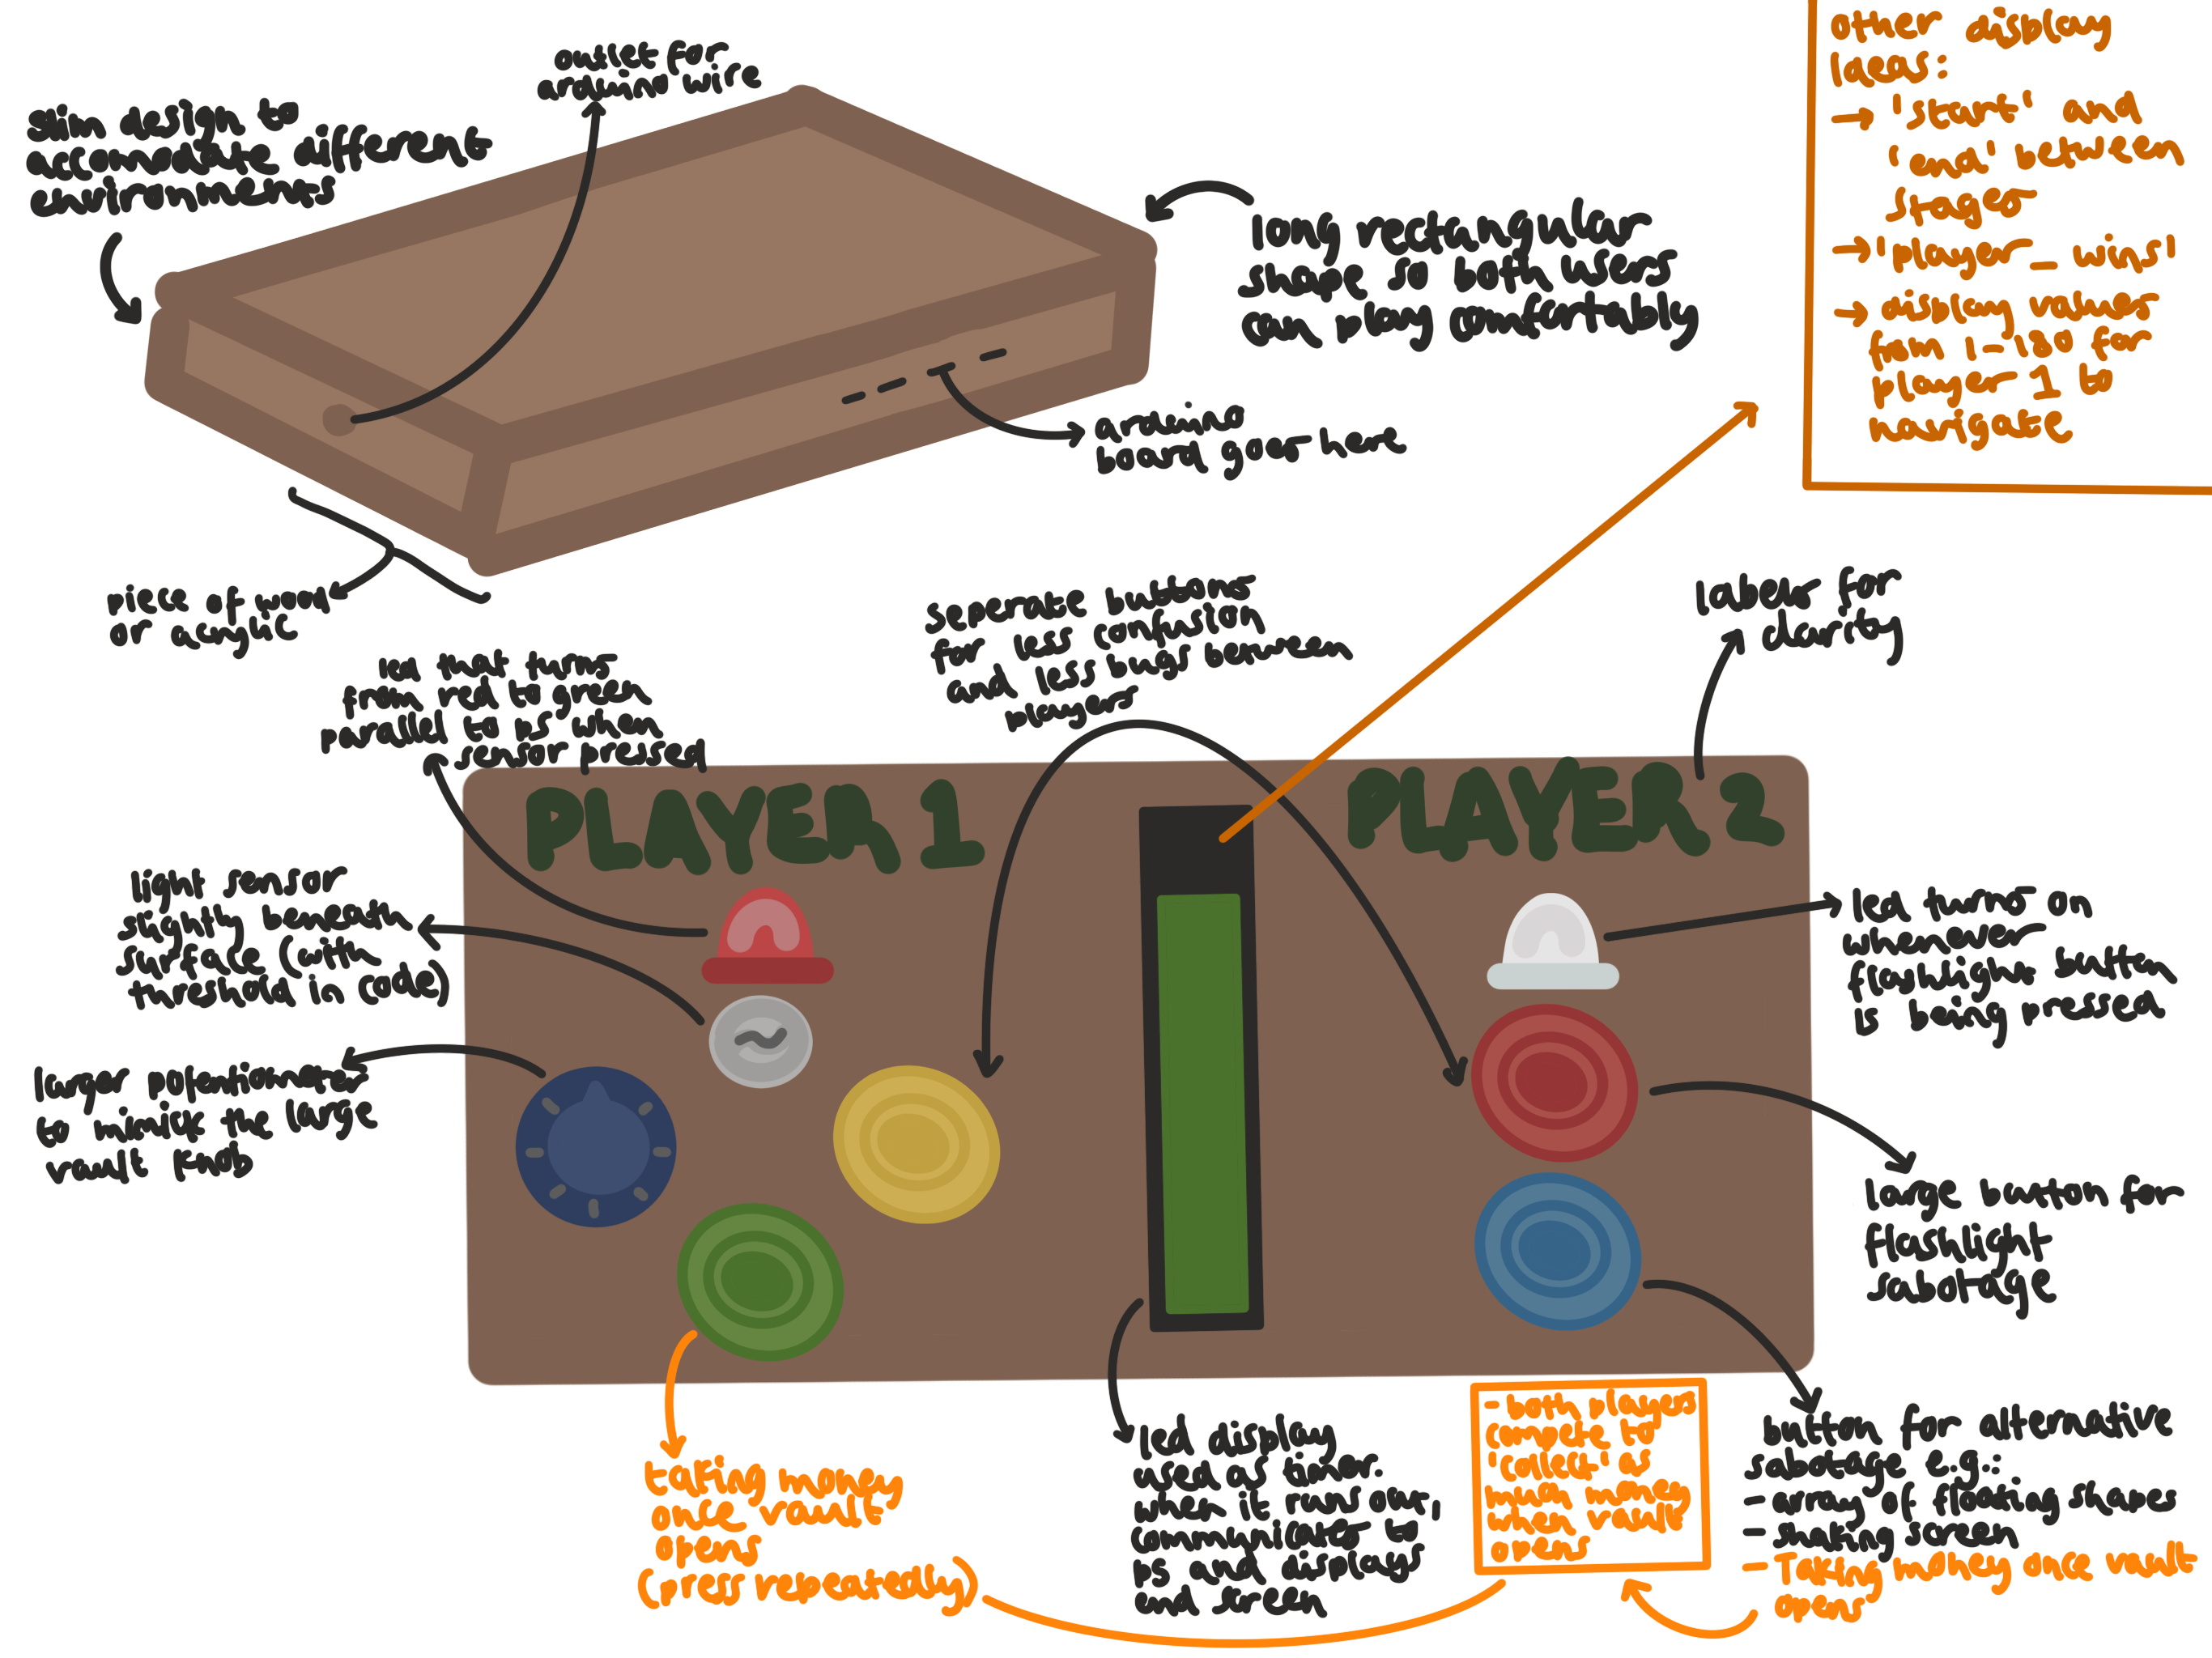 outlet for
arduino wire
slim design to
accomodate different
environments
long rectangular
shape so both users
can play comfortably
arduino
board goes here
piece of wood
or acrylic
other display
ideas:
→ 'start' and
'end' between
stages
→ 'player_ wins'
→ display values
from 1-180 for
player 1 to
navigate
led that turns
from red to green
parallel to ps when
sensor pressed
seperate buttons
for less confusion
and less bugs between
players
labels for
clarity
PLAYER 1
PLAYER 2
light sensor
slightly beneath
surface (with
threshold in code)
larger potentiometer
to mimick the large
vault knob
led turns on
whenever
flashlight button
is being pressed
large button for
flashlight
sabotage
taking money
once vault
opens
(press repeatedly)
led display
used as timer.
when it runs out,
communicates to
ps and displays
end screen
- both players
compete to
'collect' as
much money
when vault
opens
button for alternative
sabotage e.g.:
- array of floating shapes
- shaking screen
- Taking money once vault
opens